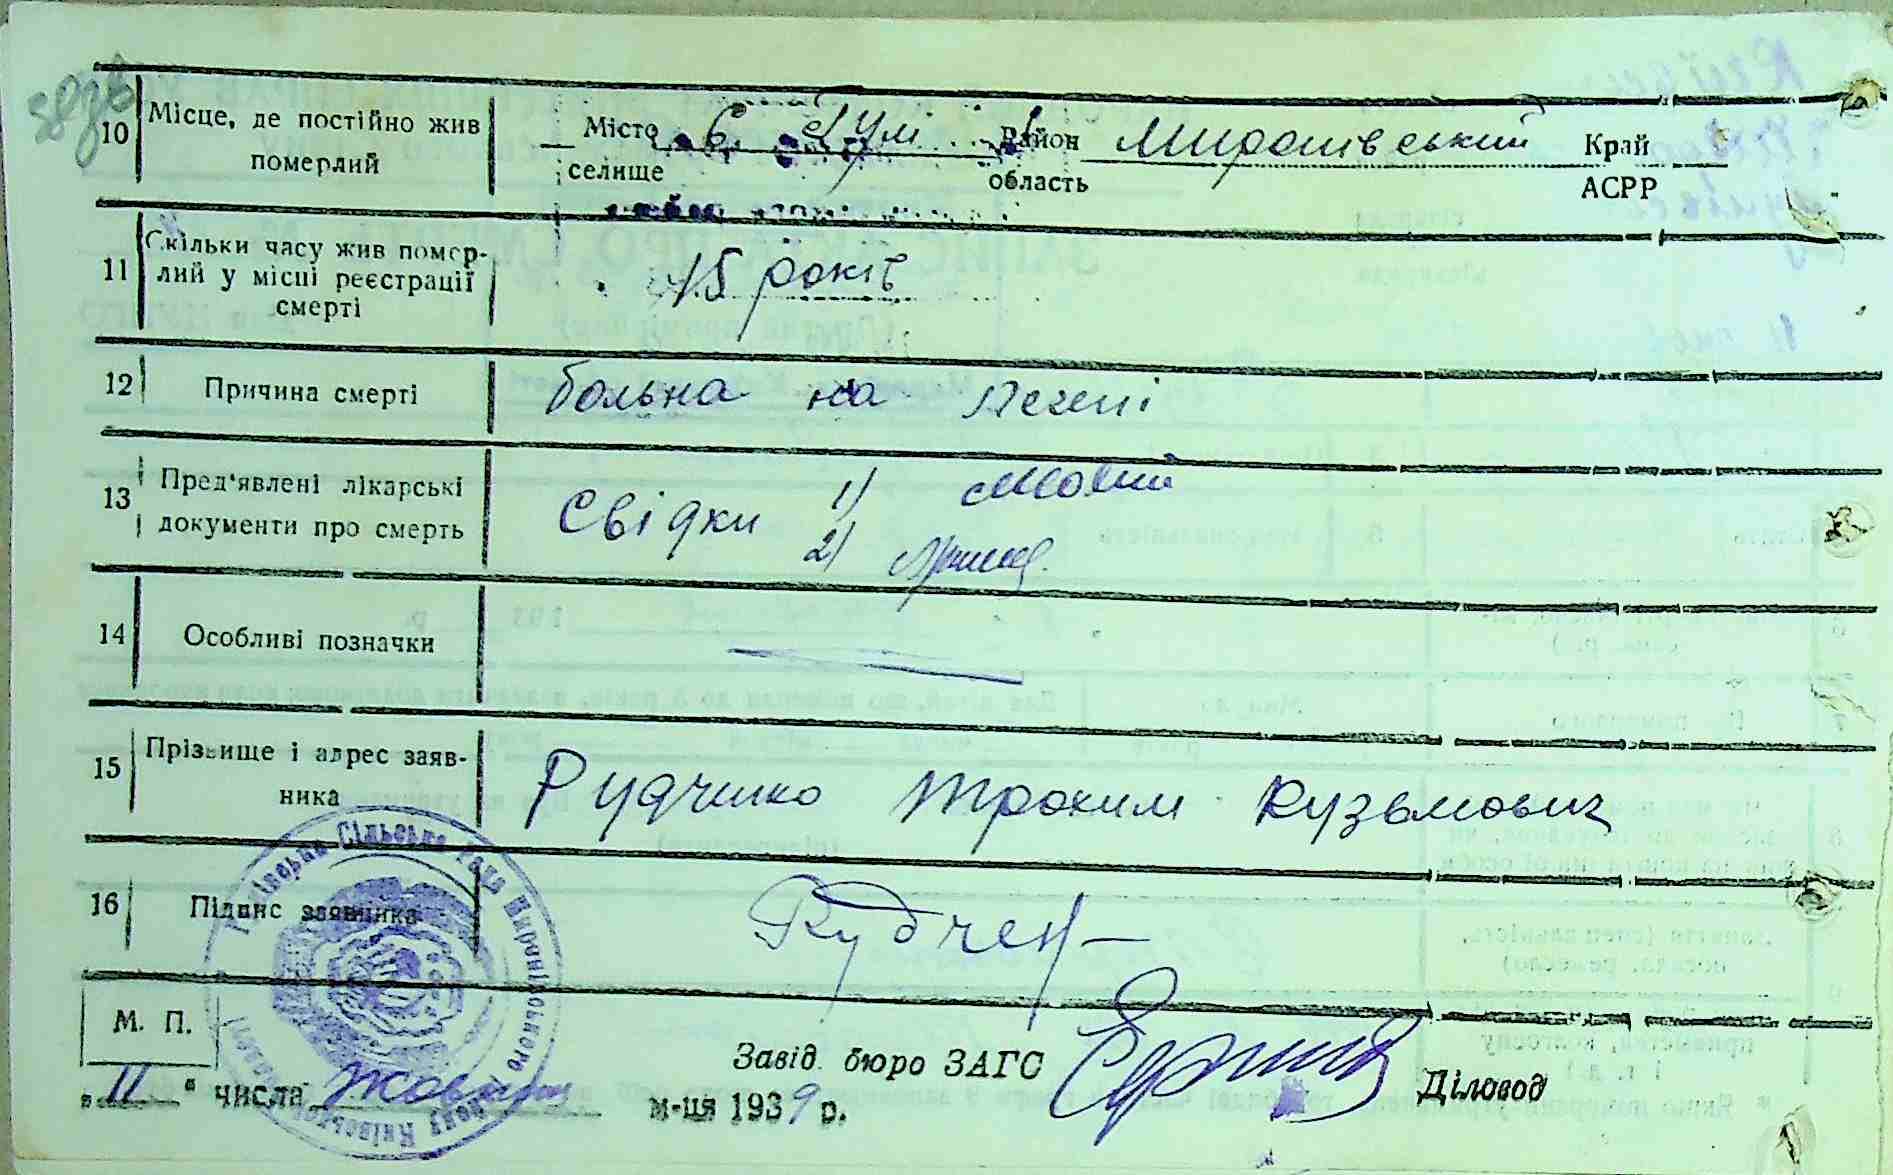 10 Місце, де постійно жив померлий
Місто селище с. Район область Миронівський Край АСРР
11 Скільки часу жив помер-
лий у місці реєстрації
смерті
15 років
12 Причина смерті
больна на
13 Пред'явлені лікарські
документи про смерть
Свідки 1)
2)
14 Особливі позначки
15 Прізвище і адрес заяв-
ника
Рудченко Трохим Кузьмович
16 Підпис заявника
Рудчен
М. П.
Сільська Рада Миронівського
Завід. бюро ЗАГС
Діловод
„11“ числа жовтня м-ця 1939 р.